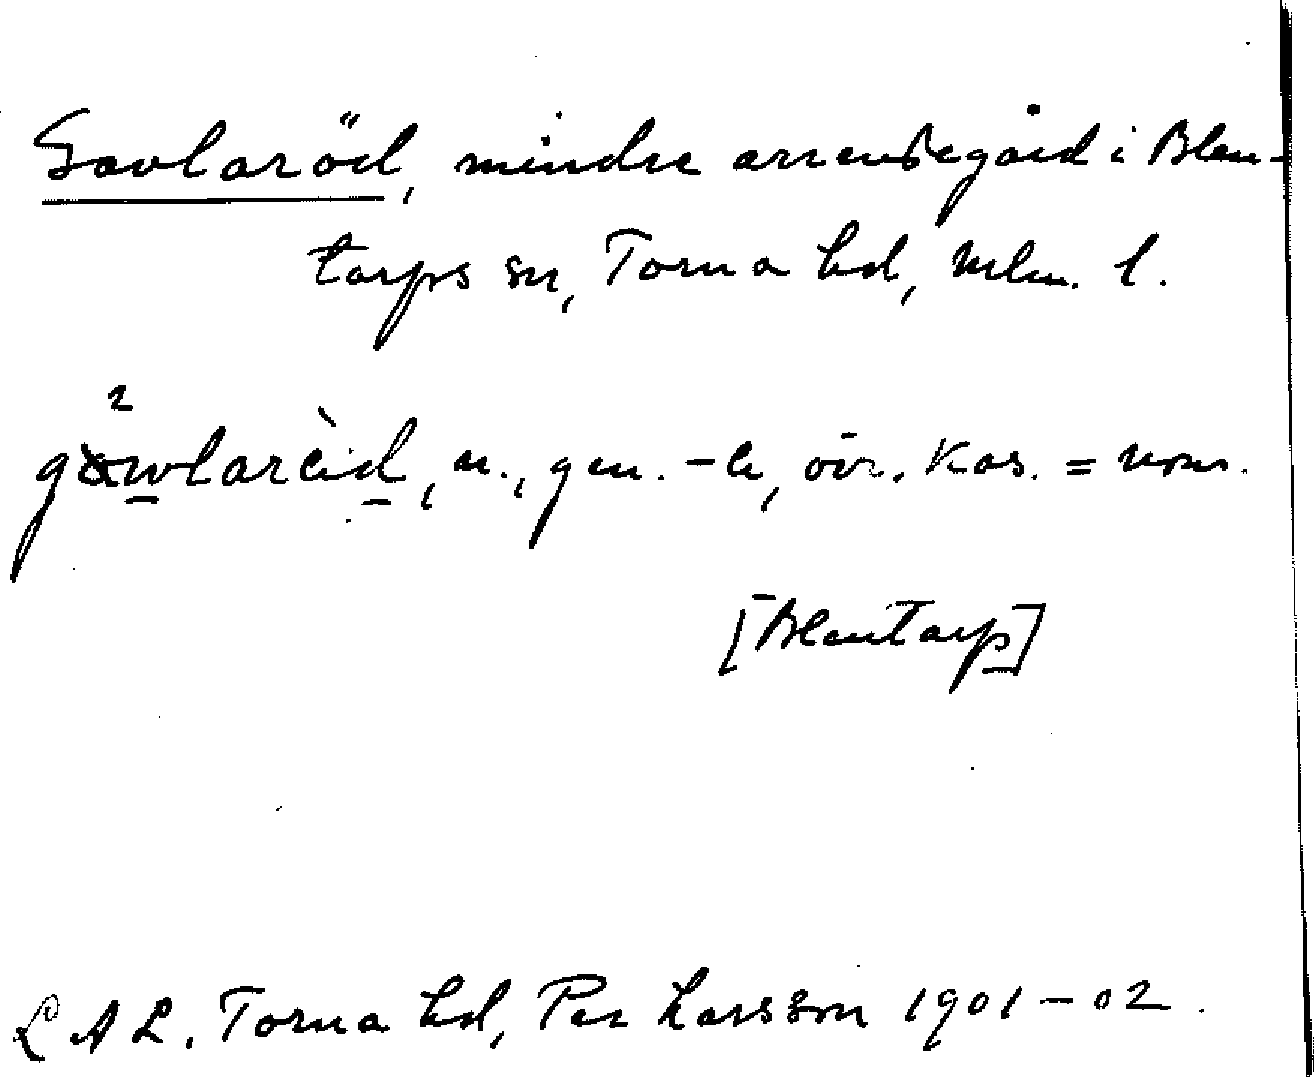 Gavlaröd, mindre arrendegård i Blen-
tarps sn, Torna hd, Mlm. l.
gawlarèid, n., gen. -s, övr. kas. = nom.
[Blentarp]
LAL. Torna hd, Per Larsson 1901-02.